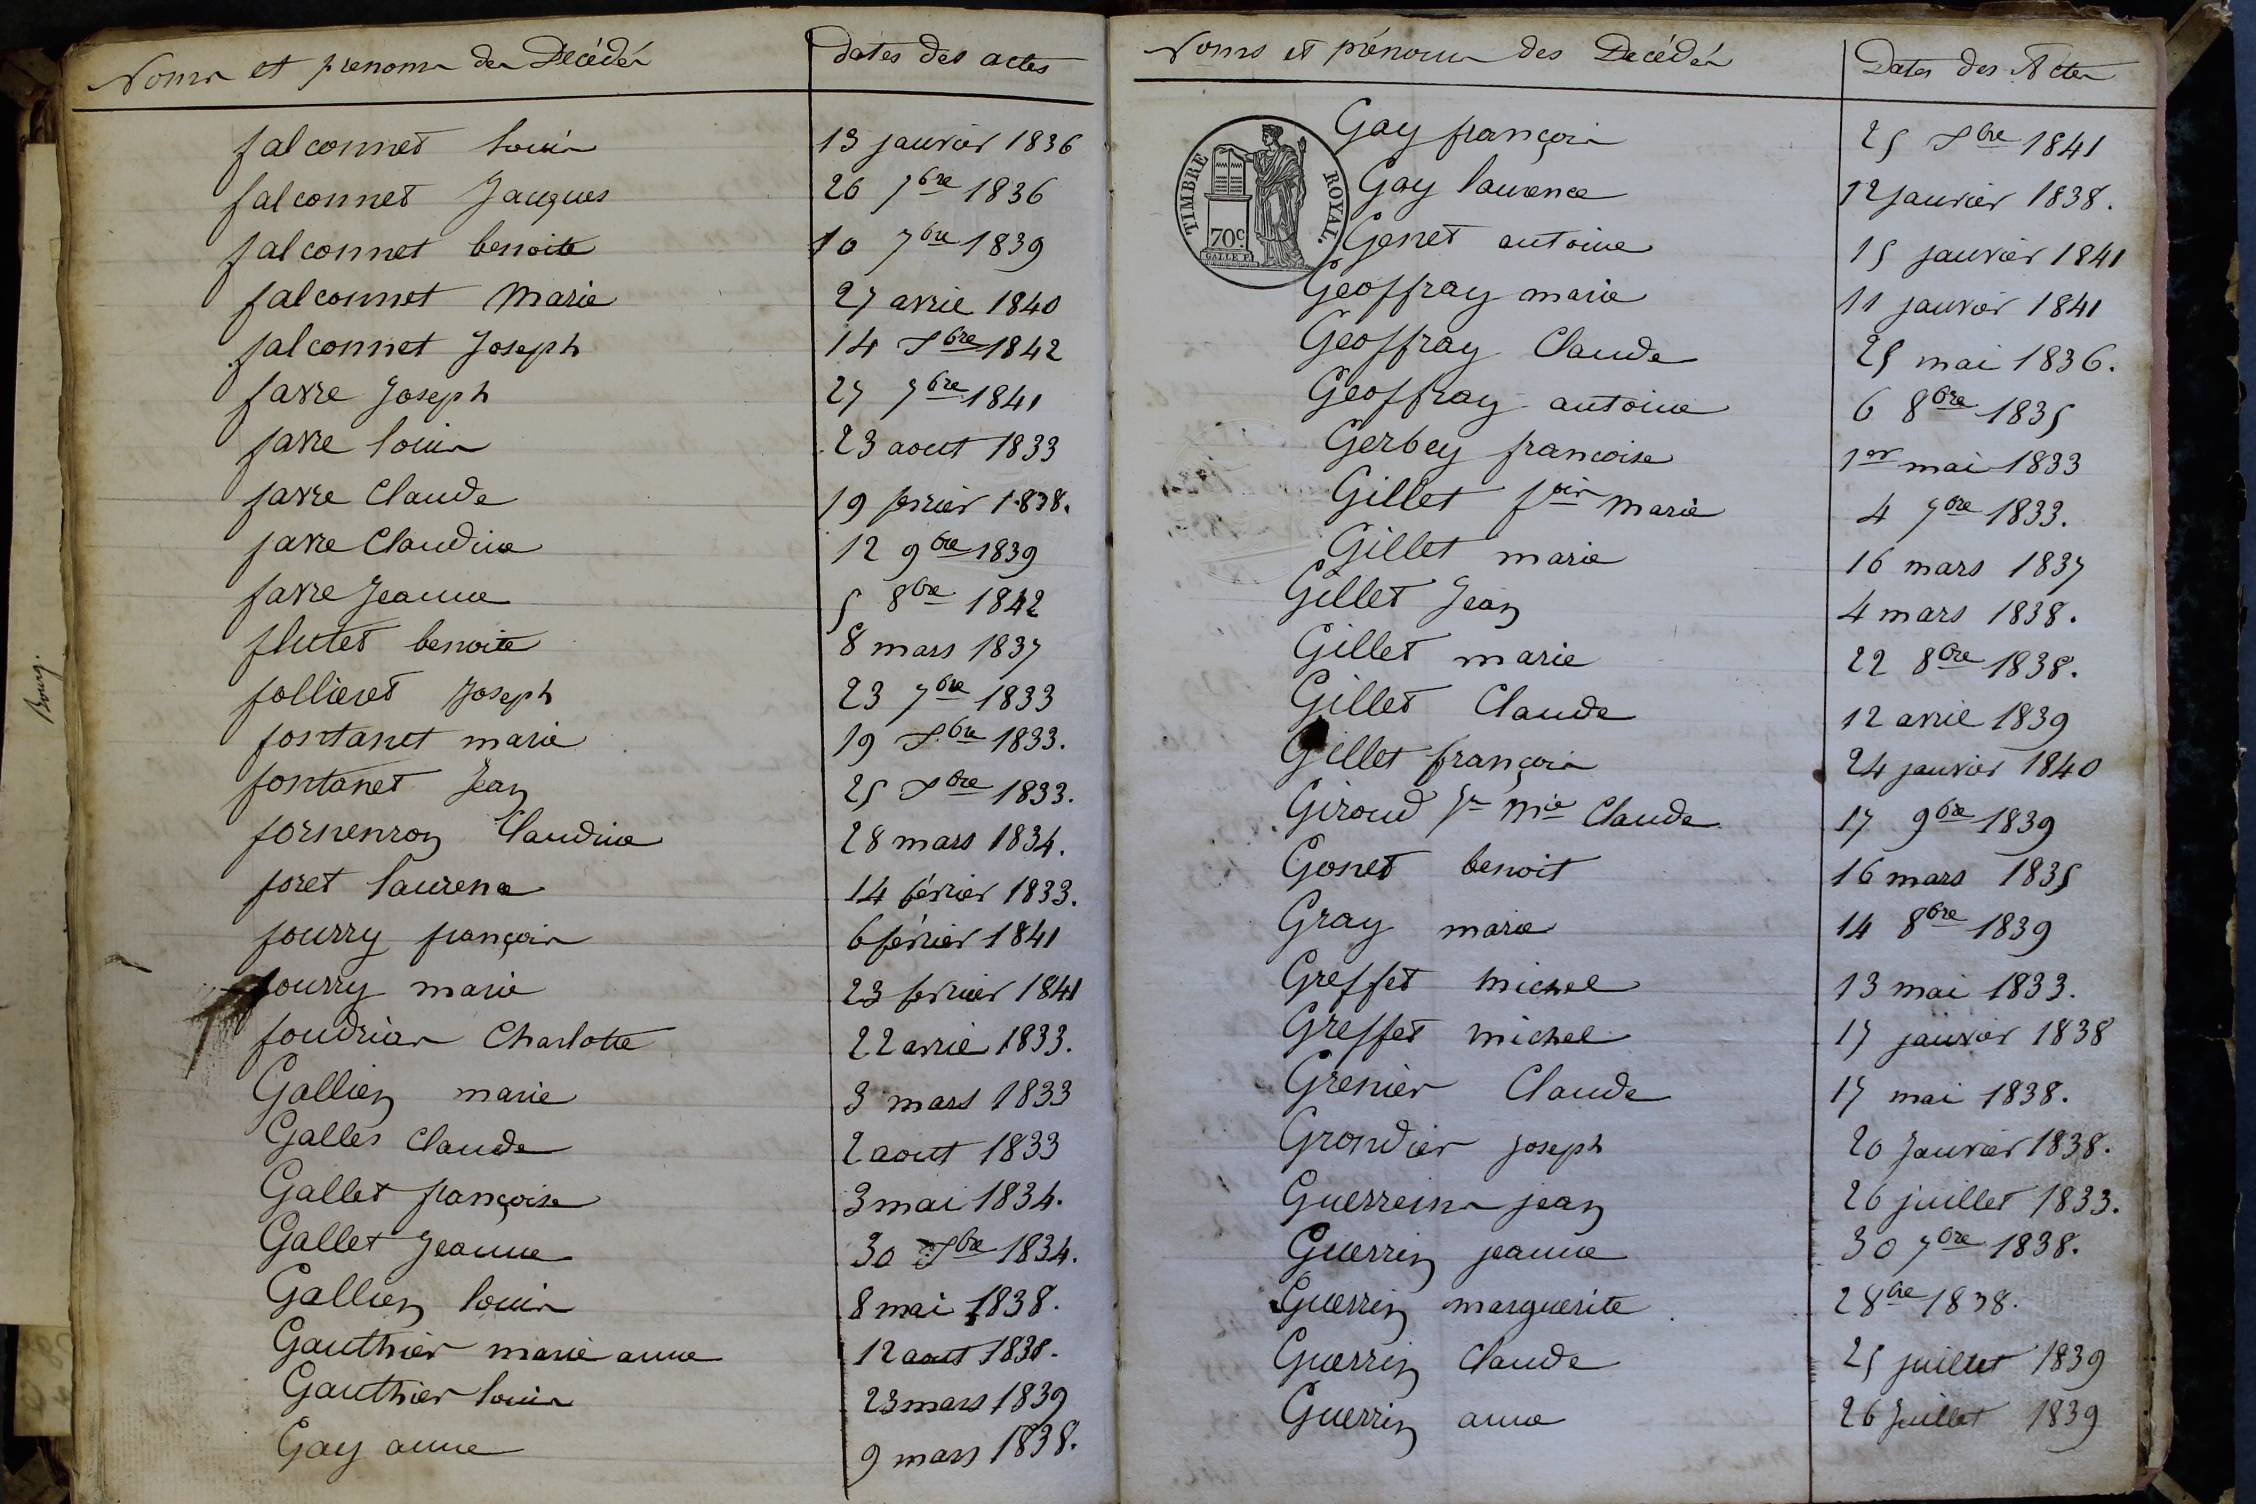 Noms et prenoms des Décédés
dates des actes
falconnet louis 13 janvier 1836
falconnet Jacques 26 7bre 1836
falconnet benoite 10 7bre 1839
falconnet Marie 27 avril 1840
falconnet Joseph 14 Xbre 1842
favre Joseph 27 7bre 1841
favre louis 23 aout 1833
favre Claude 19 fevrier 1838.
favre Claudine 12 9bre 1839
favre Jeanne 5 8bre 1842
flutet benoite 8 mars 1837
follieret Joseph 23 7bre 1833
fontanet marie 19 Xbre 1833.
fontanet Jean 25 Xbre 1833.
fornenron Claudine 28 mars 1834.
foret laurence 14 février 1833.
fourry françois 6 février 1841
fourry marie 23 fevrier 1841
foudrias Charlotte 22 avril 1833.
Gallien marie 3 mars 1833
Galles Claude 2 aout 1833
Gallet françoise 3 mai 1834.
Gallet Jeanne 30 Xbre 1834.
Gallien louis 8 mai 1838.
Gauthier marie anne 12 aout 1838.
Gauthier louis 23 mars 1839
Gay anne 9 mars 1838.
Bourg.
Noms et prénoms des Décédés
Dates des Actes
TIMBRE ROYAL.
70c.
GALLE F.
Gay françois 25 Xbre 1841
Gay laurence 12 Janvier 1838.
Genet antoine 15 janvier 1841
Geoffray marie 11 janvier 1841
Geoffray Claude 25 mai 1836.
Geoffray antoine 6 8bre 1835
Gerbey francoise 1er mai 1833
Gillet fois Marie 4 7bre 1833.
Gillet marie 16 mars 1837
Gillet Jean 4 mars 1838.
Gillet marie 22 8bre 1838.
Gillet Claude 12 avril 1839
Gillet françois 24 janvier 1840
Giroud Jn Mie Claude 17 9bre 1839
Gonet benoit 16 mars 1835
Gray marie 14 8bre 1839
Greffet Michel 13 mai 1833.
Greffet michel 17 janvier 1838
Grenier Claude 17 mai 1838.
Grondier joseph 20 Janvier 1838.
Guerreins jean 26 juillet 1833.
Guerrin jeanne 30 7bre 1838.
Guerrin marguerite 2 8bre 1838.
Guerrin Claude 25 juillet 1839
Guerrin anne 26 Juillet 1839